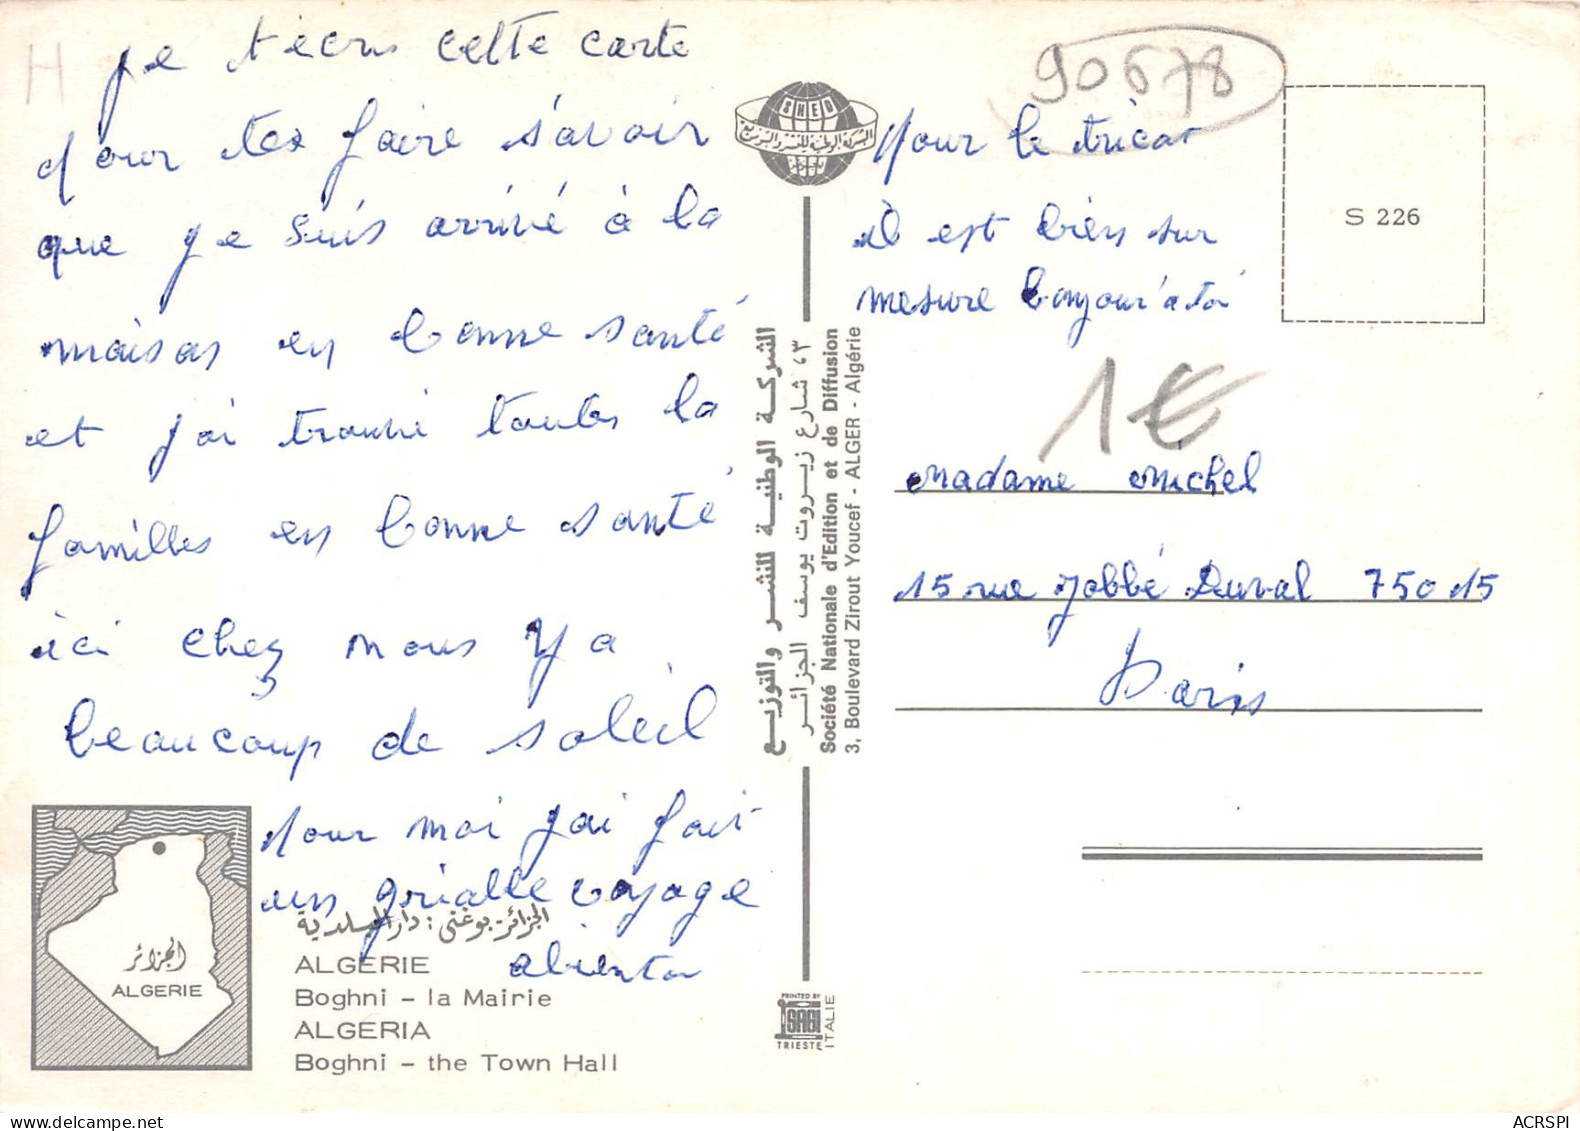 H
je t'écris cette carte
pour tes faire s'avoir
que je suis arrivé à la
maison en bonne santé
et j'ai trouvé toutes la
familles en bonne santé
ici chez nous y a
beaucoup de soleil
pour moi j'ai fait
un voyage
abiento
90678
pour le tricot
il est bien sur
mesure bonjour à toi
S 226
1€
Madame Michel
15 rue Jobbé Duval 75015
Paris
SNED
الشركة الوطنية للنشر والتوزيع
الشركة الوطنية للنشر والتوزيع
٣، شارع زيروت يوسف الجزائر
Société Nationale d'Edition et de Diffusion
3, Boulevard Zirout Youcef - ALGER - Algérie
الجزائر
ALGERIE
الجزائر - بوغني : دار البلدية
ALGERIE
Boghni - la Mairie
ALGERIA
Boghni - the Town Hall
PRINTED BY
SAGI
TRIESTE
ITALIE
ACRSPI